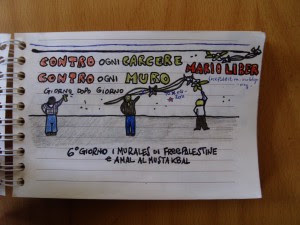 CONTRO OGNI CARCERE
CONTRO OGNI MURO
GIORNO DOPO GIORNO
MARIO LIBER
6° GIORNO I MURALES DI FREEPALESTINE
E AMAL AL MUSTAKBAL